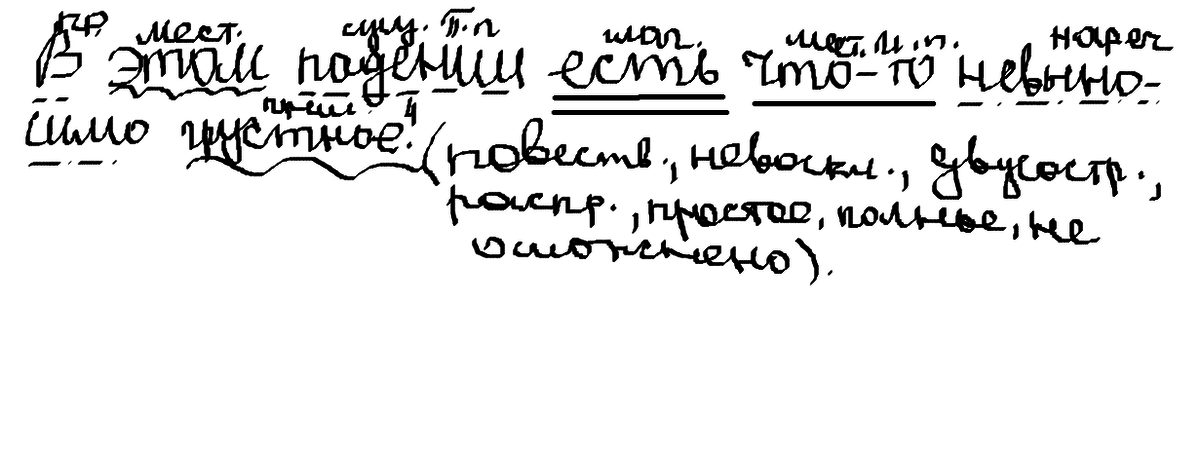 пр мест. сущ. П.п глаг. мест. И. п. нареч
В этом падении есть что-то невыно-
прил. 4
симо грустное. (повеств., невоскл., двусостр.,
распр., простое, полное, не
осложнено).